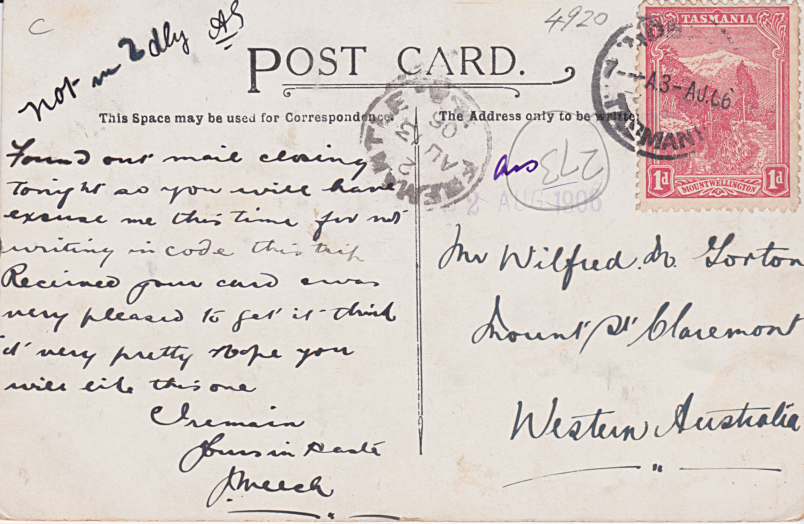 C
not in 2 dly AS
4920
POST CARD.
TASMANIA
7- A3-AU.06
TASMANIA
1d MOUNT WELLINGTON 1d
FREMANTLE
AU
06
This Space may be used for Correspondence.
The Address only to be written
273
ans
22 AUG 1906
Found out mail closing
tonight so you will have
excuse me this time for not
writing in code this trip
Received your card & was
very pleased to get it think
it very pretty Hope you
will like this one
I remain
Yours in haste
J Meech
Mr Wilfred. N. Gorton
Mount St Claremont
Western Australia